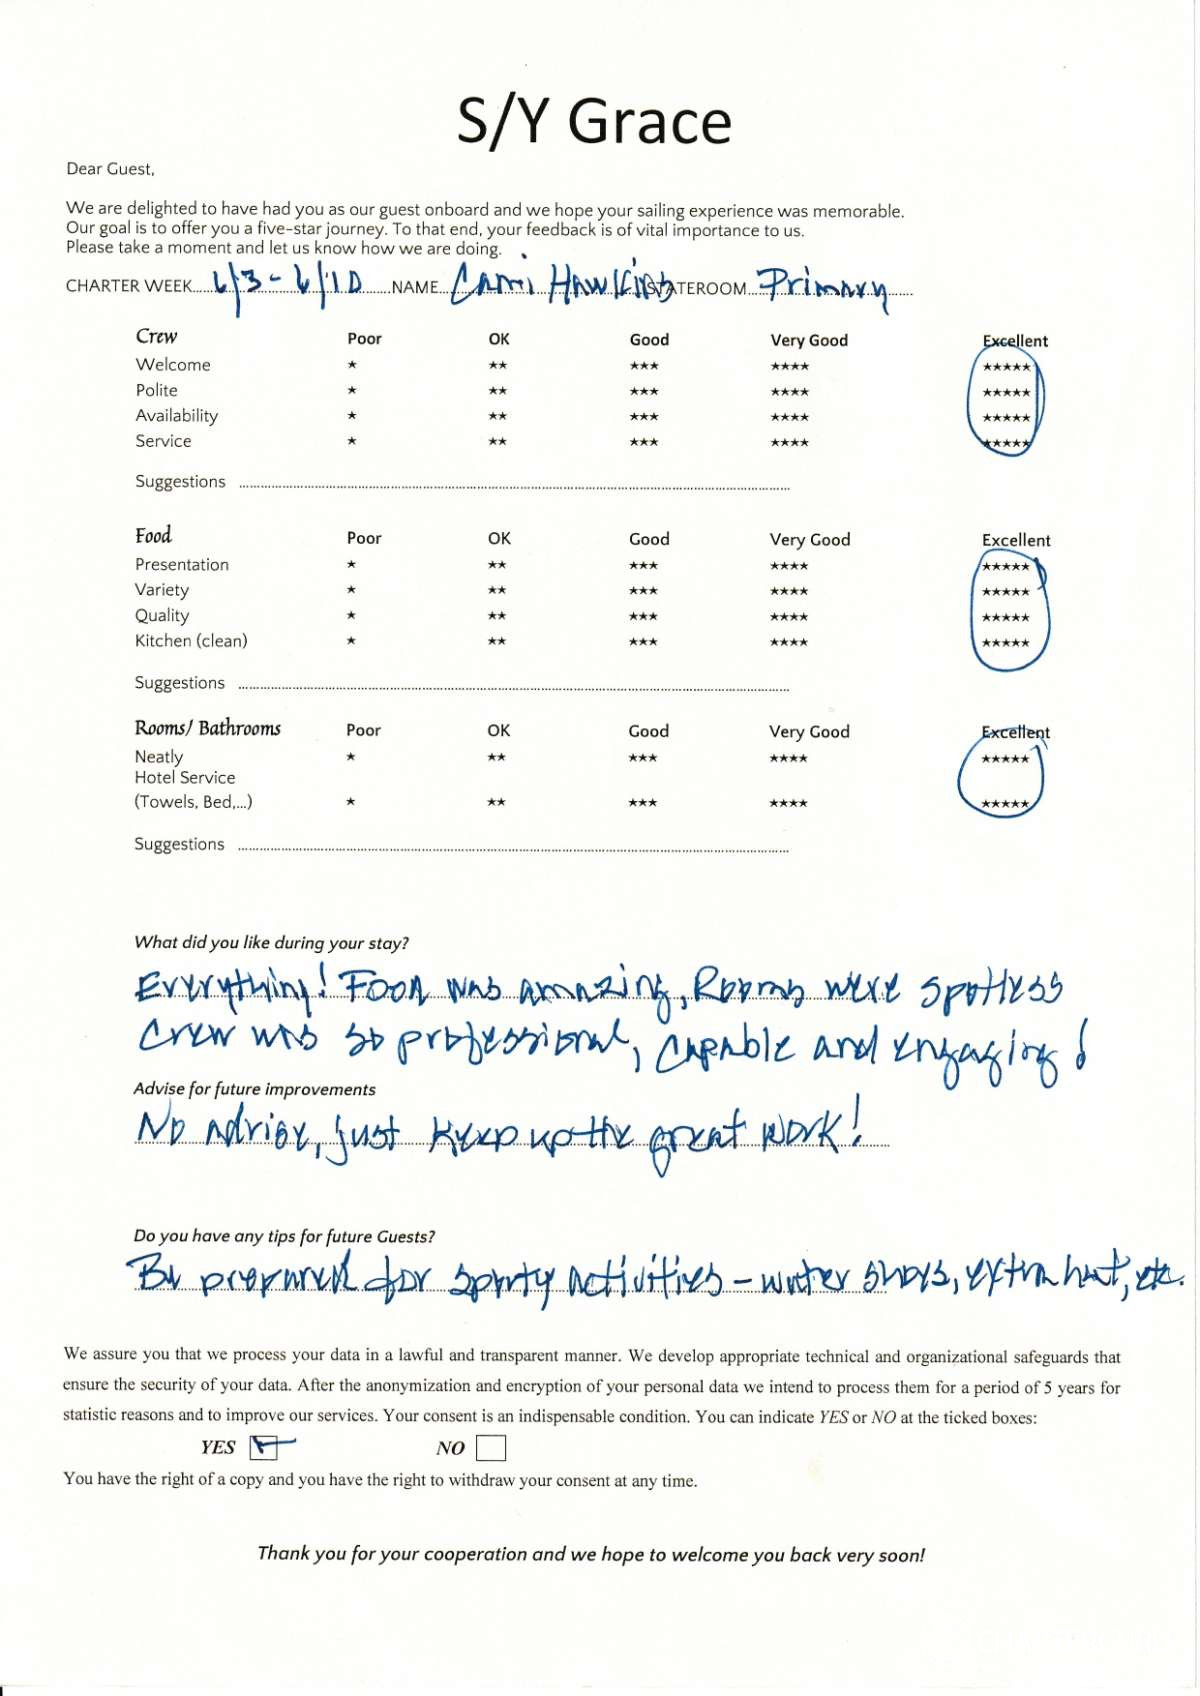 S/Y Grace
Dear Guest,
We are delighted to have had you as our guest onboard and we hope your sailing experience was memorable.
Our goal is to offer you a five-star journey. To that end, your feedback is of vital importance to us.
Please take a moment and let us know how we are doing.
CHARTER WEEK 6/3 - 6/10 NAME Cami Hawkins STATEROOM Primary
Crew Poor OK Good Very Good Excellent
Welcome ★ ★★ ★★★ ★★★★ ★★★★★
Polite ★ ★★ ★★★ ★★★★ ★★★★★
Availability ★ ★★ ★★★ ★★★★ ★★★★★
Service ★ ★★ ★★★ ★★★★ ★★★★★
Suggestions
Food Poor OK Good Very Good Excellent
Presentation ★ ★★ ★★★ ★★★★ ★★★★★
Variety ★ ★★ ★★★ ★★★★ ★★★★★
Quality ★ ★★ ★★★ ★★★★ ★★★★★
Kitchen (clean) ★ ★★ ★★★ ★★★★ ★★★★★
Suggestions
Rooms/ Bathrooms Poor OK Good Very Good Excellent
Neatly ★ ★★ ★★★ ★★★★ ★★★★★
Hotel Service
(Towels, Bed,...) ★ ★★ ★★★ ★★★★ ★★★★★
Suggestions
What did you like during your stay?
Everything! Food was amazing, Rooms were spotless
Crew was so professional, capable and engaging!
Advise for future improvements
No advice, just keep up the great work!
Do you have any tips for future Guests?
Be prepared for sporty activities - water shoes, extra hat, etc.
We assure you that we process your data in a lawful and transparent manner. We develop appropriate technical and organizational safeguards that
ensure the security of your data. After the anonymization and encryption of your personal data we intend to process them for a period of 5 years for
statistic reasons and to improve our services. Your consent is an indispensable condition. You can indicate YES or NO at the ticked boxes:
YES NO
You have the right of a copy and you have the right to withdraw your consent at any time.
Thank you for your cooperation and we hope to welcome you back very soon!